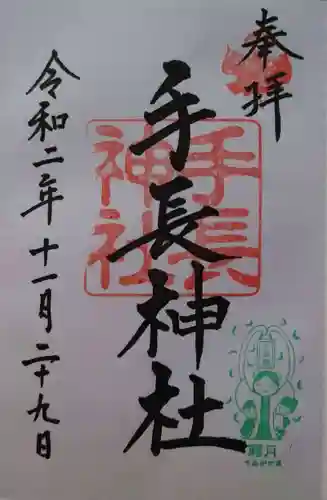 奉拝
手長神社
手長
神社
令和二年十一月二十九日